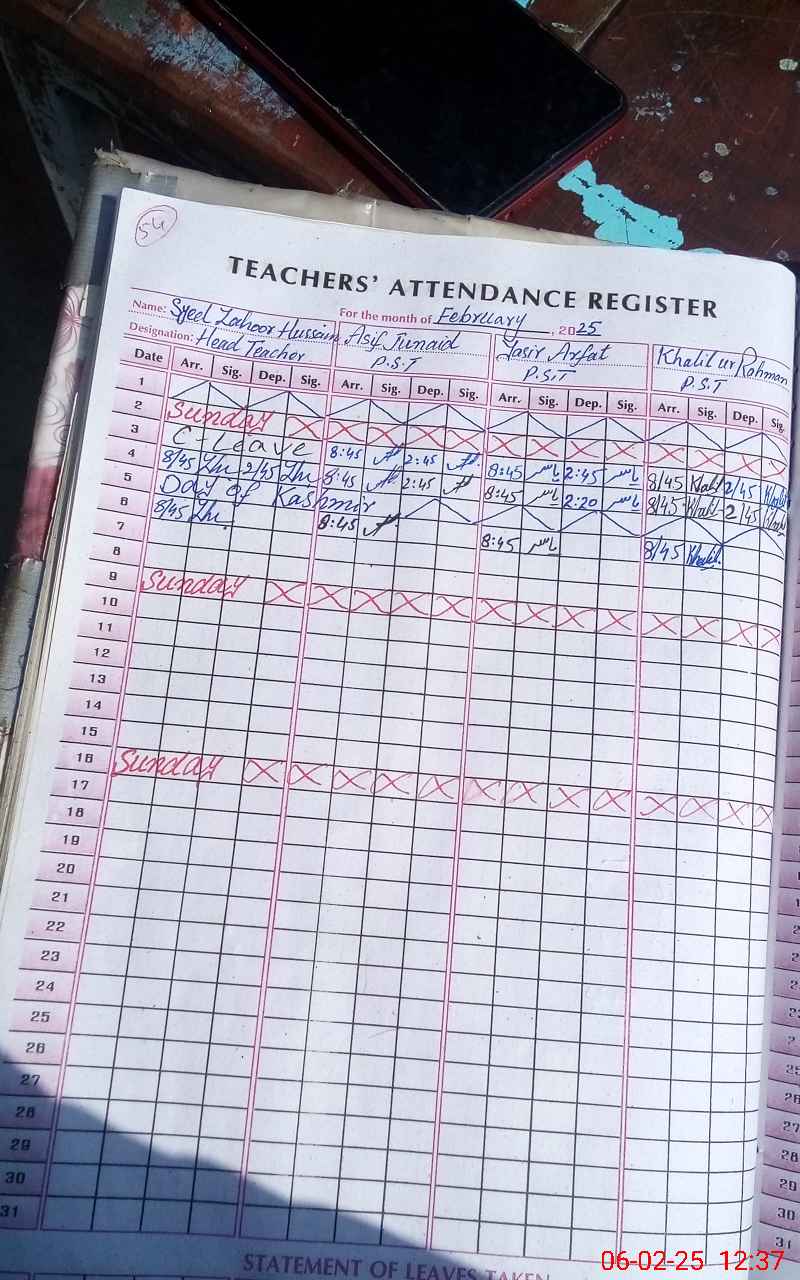 54
TEACHERS' ATTENDANCE REGISTER
For the month of February, 2025
Name: Syed Zahoor Hussain Asif Junaid Yasir Arfat Khalil ur Rahman
Designation: Head Teacher P.S.T P.S.T P.S.T
Date Arr. Sig. Dep. Sig. Arr. Sig. Dep. Sig. Arr. Sig. Dep. Sig. Arr. Sig. Dep. Sig.
1
2 Sunday
3 C-Leave 8:45 2:45 8:45 یاسر 2:45 یاسر 8/45 Khalil 2/45 Khalil
4 8/45 2/45 8:45 2:45 8:45 یاسر 2:20 یاسر 8/45 Khalil 2/45 Khalil
5 Day of Kashmir
6 8/45 8:45 8:45 یاسر 8/45 Khalil
7
8
9 Sunday
10
11
12
13
14
15
16 Sunday
17
18
19
20
21
22
23
24
25
26
27
28
29
30
31
STATEMENT OF LEAVES TAKEN
06-02-25 12:37